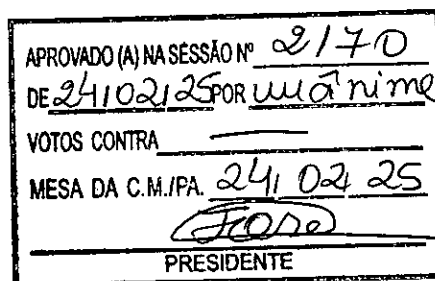 APROVADO (A) NA SESSÃO Nº 2170
DE 24/02/25 POR unânime
VOTOS CONTRA —
MESA DA C.M./PA. 24/ 02/ 25
PRESIDENTE